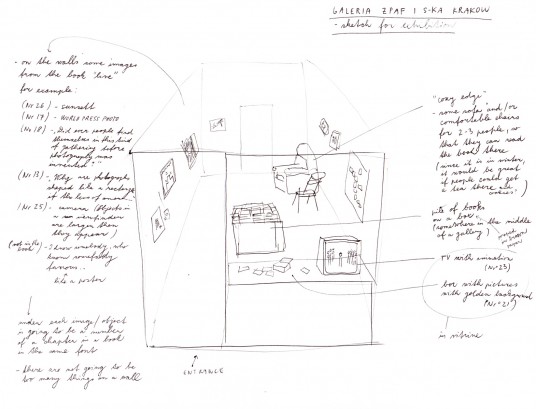 GALERIA ZPAF I S-KA KRAKOW
- sketch for exhibition
- on the walls some images
from the book "live"
for example:
(Nr 26) - sunset
(Nr 19) - WORLD PRESS PHOTO
(Nr 18) - "Did ever people find
themselves in this kind
of gathering before
photography was
invented?"
(Nr 13) - "Why are photographs
shaped like a rectangle
if the lens of
(Nr 25) - camera (Objects in
a viewfinder
are larger than
they appear)
(not in the book) - I know somebody, who
know somebody
famous..
like a poster
under each image/object
is going to be a number
of a chapter in a book
in the same font
- there are not going to be
too many things on a wall
ENTRANCE
"cosy edge"
- some sofa and/or
comfortable chairs
for 2-3 people, so
that they can read
the book there
(since it is in winter,
it would be great
if people could get
a tea there and
cookies)
pile of books
on a box
(somewhere in the middle
of a gallery)
TV with animation
(Nr 23)
box with pictures
with golden background
(Nr 21)
in vitrine